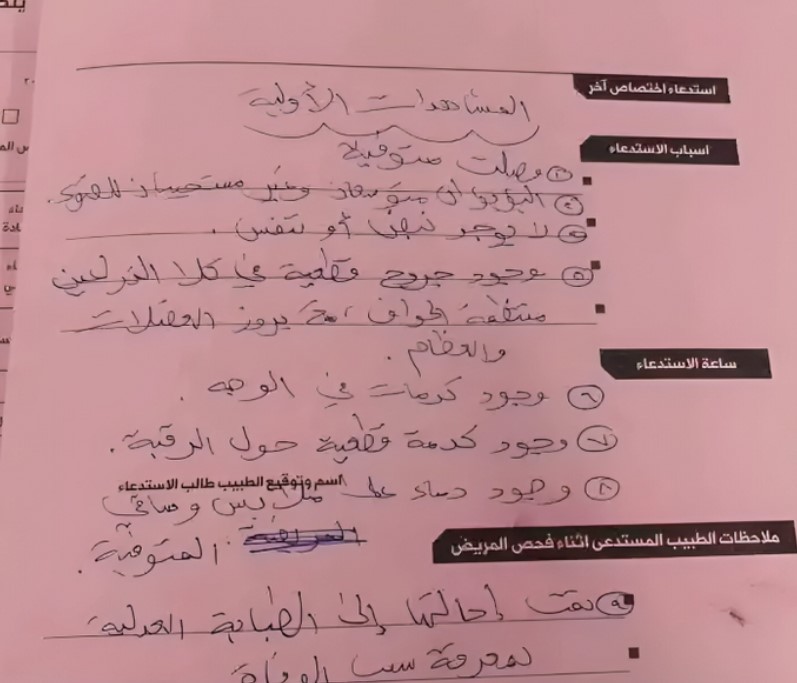 استدعاء اختصاص آخر
المشاهدات الأولية
اسباب الاستدعاء
وصلت متوفية
البؤبؤان متوسعان وغير مستجيبان للضوء.
لا يوجد نبض أو تنفس.
٥ وجود جروح قطعية في كلا الذراعين
منتظمة الحواف، مع بروز العضلات
والعظام.
ساعة الاستدعاء
٦ وجود كدمات في الوجه.
٧ وجود كدمة قطعية حول الرقبة.
اسم وتوقيع الطبيب طالب الاستدعاء
٨ وجود دماء على ملابس وساقي
المتوفية.
ملاحظات الطبيب المستدعى اثناء فحص المريض
٩ تمت إحالتها إلى الطبابة العدلية
لمعرفة سبب الوفاة